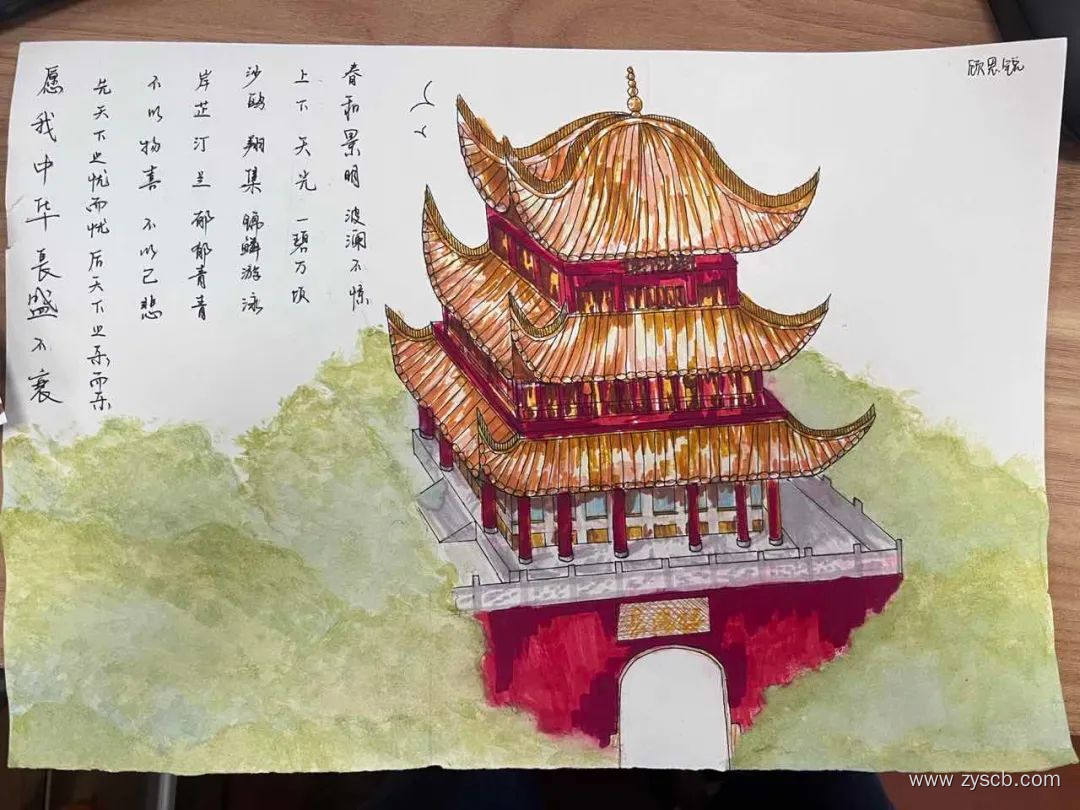 春和景明 波澜不惊
上下天光 一碧万顷
沙鸥翔集 锦鳞游泳
岸芷汀兰 郁郁青青
不以物喜 不以己悲
先天下之忧而忧 后天下之乐而乐
愿我中华長盛不衰
顾恩锐
www.zyscb.com